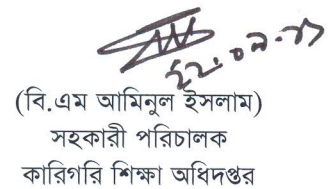 (বি.এম আমিনুল ইসলাম)
সহকারী পরিচালক
কারিগরি শিক্ষা অধিদপ্তর